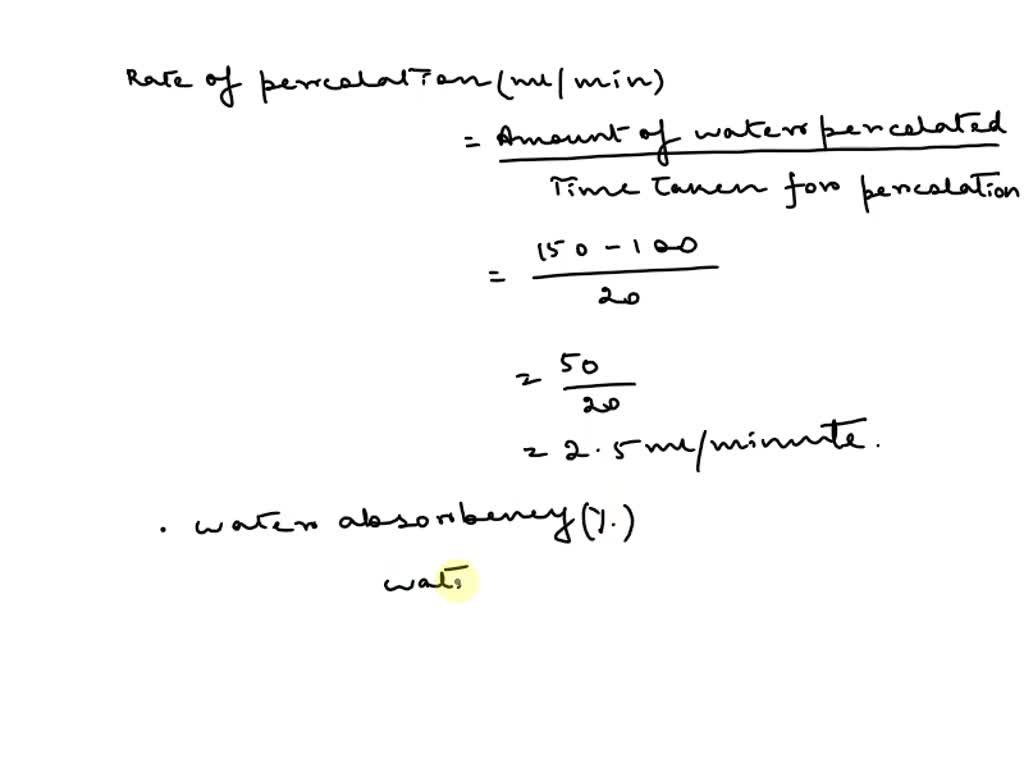 Rate of percolation (ml/min)
= Amount of water percolated
Time taken for percolation
= 150 - 100
20
= 50
20
= 2.5 ml/minute.
. water absorbency (%)
wat